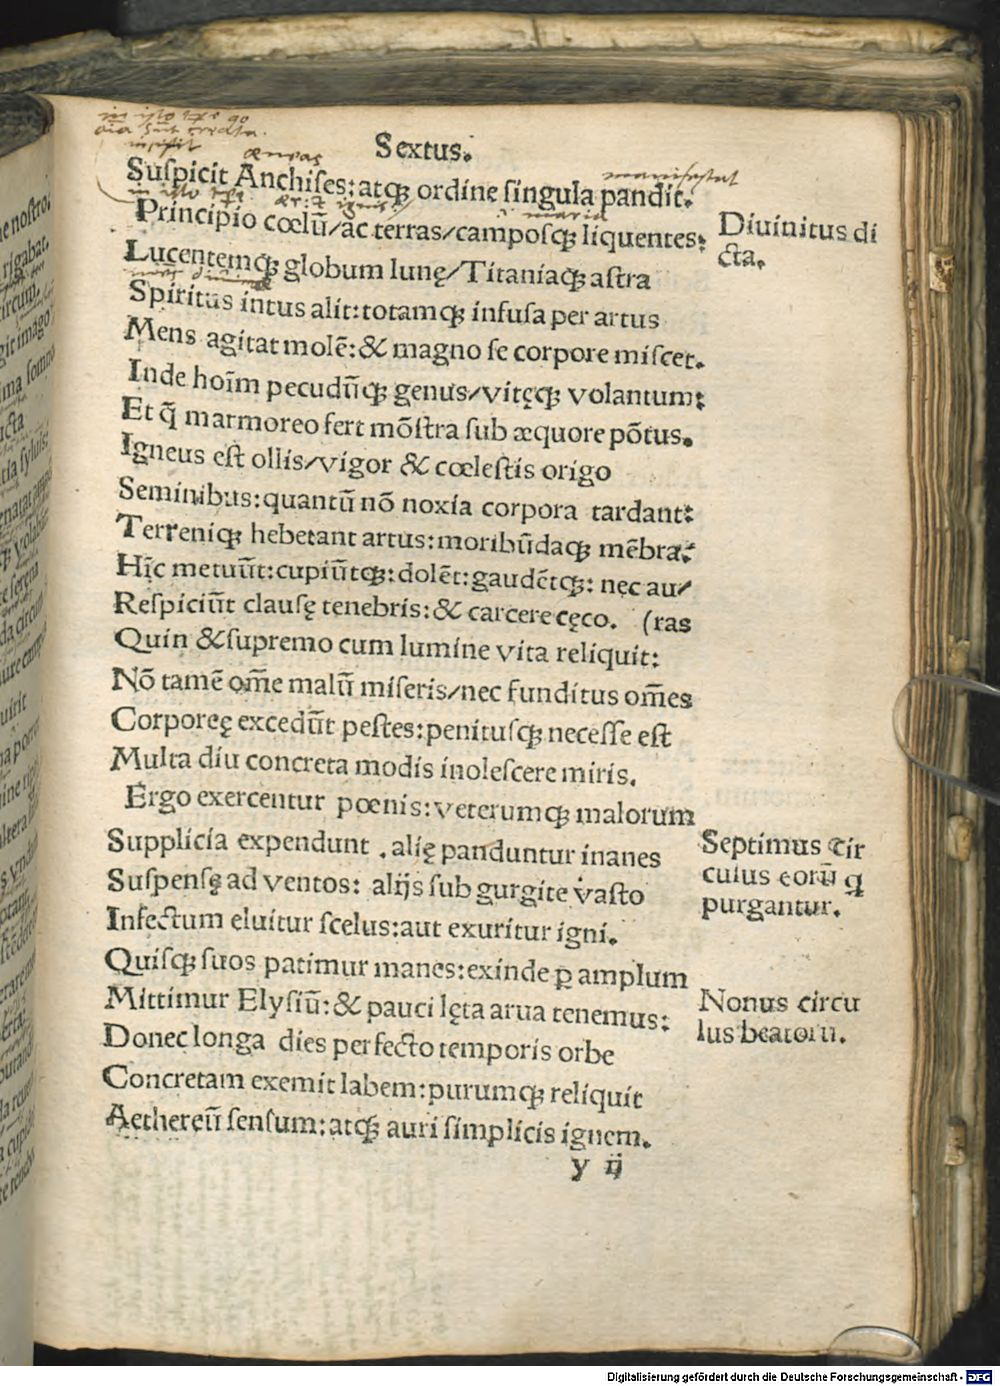 Sextus.
æneas
manifestat
Suſpicit Anchiſes: atqꝫ ordine ſingula pandit.
maria
Principio cœlū/ac terras/campoſqꝫ liquentes:
Diuinitus di
cta.
Lucentemqꝫ globum lunę/Titaniaqꝫ aſtra
Spiritus intus alit: totamqꝫ infuſa per artus
Mens agitat molē: & magno ſe corpore miſcet.
Inde hoīm pecudūqꝫ genus/vitęqꝫ volantum:
Et q̄ marmoreo fert mōſtra ſub æquore pōtus.
Igneus eſt ollis/vigor & cœleſtis origo
Seminibus: quantū nō noxia corpora tardant:
Terreniqꝫ hebetant artus: moribūdaqꝫ mēbra:
Hīc metuūt: cupiūtqꝫ: dolēt: gaudētqꝫ: nęc au/
Reſpiciūt clauſę tenebris: & carcere cęco. (ras
Quin & ſupremo cum lumine vita reliquit:
Nō tamē om̄e malū miſeris/nec funditus om̄es
Corporeę excedūt peſtes: penituſqꝫ neceſſe eſt
Multa diu concreta modis inoleſcere miris.
Ergo exercentur pœnis: veterumqꝫ malorum
Supplicia expendunt . alię panduntur inanes
Suſpenſę ad ventos: alijs ſub gurgite vaſto
Infectum eluitur ſcelus: aut exuritur igni.
Septimus Cir
culus eorū q
purgantur.
Quiſqꝫ ſuos patimur manes: exinde ꝑ amplum
Mittimur Elyſiū: & pauci lęta arua tenemus:
Nonus circu
lus beatoru.
Donec longa dies perfecto temporis orbe
Concretam exemit labem: purumqꝫ reliquit
Aethereū ſenſum: atqꝫ auri ſimplicis ignem.
y ij
Digitalisierung gefördert durch die Deutsche Forschungsgemeinschaft - DFG